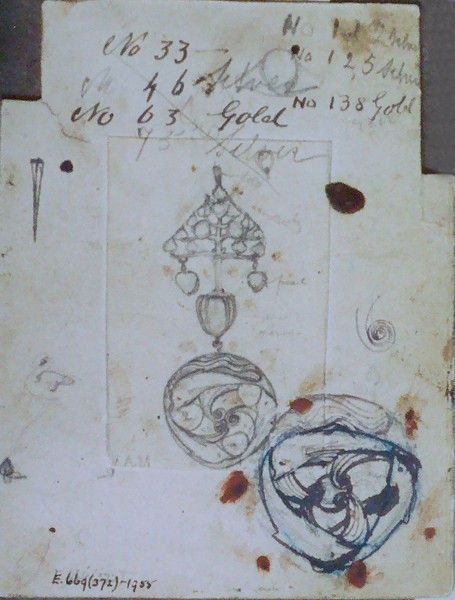 No 33
46 Silver
No 63 Gold
75 Silver
No
No 125 Silver
No 138 Gold
V&AM
E.669(372)-1955